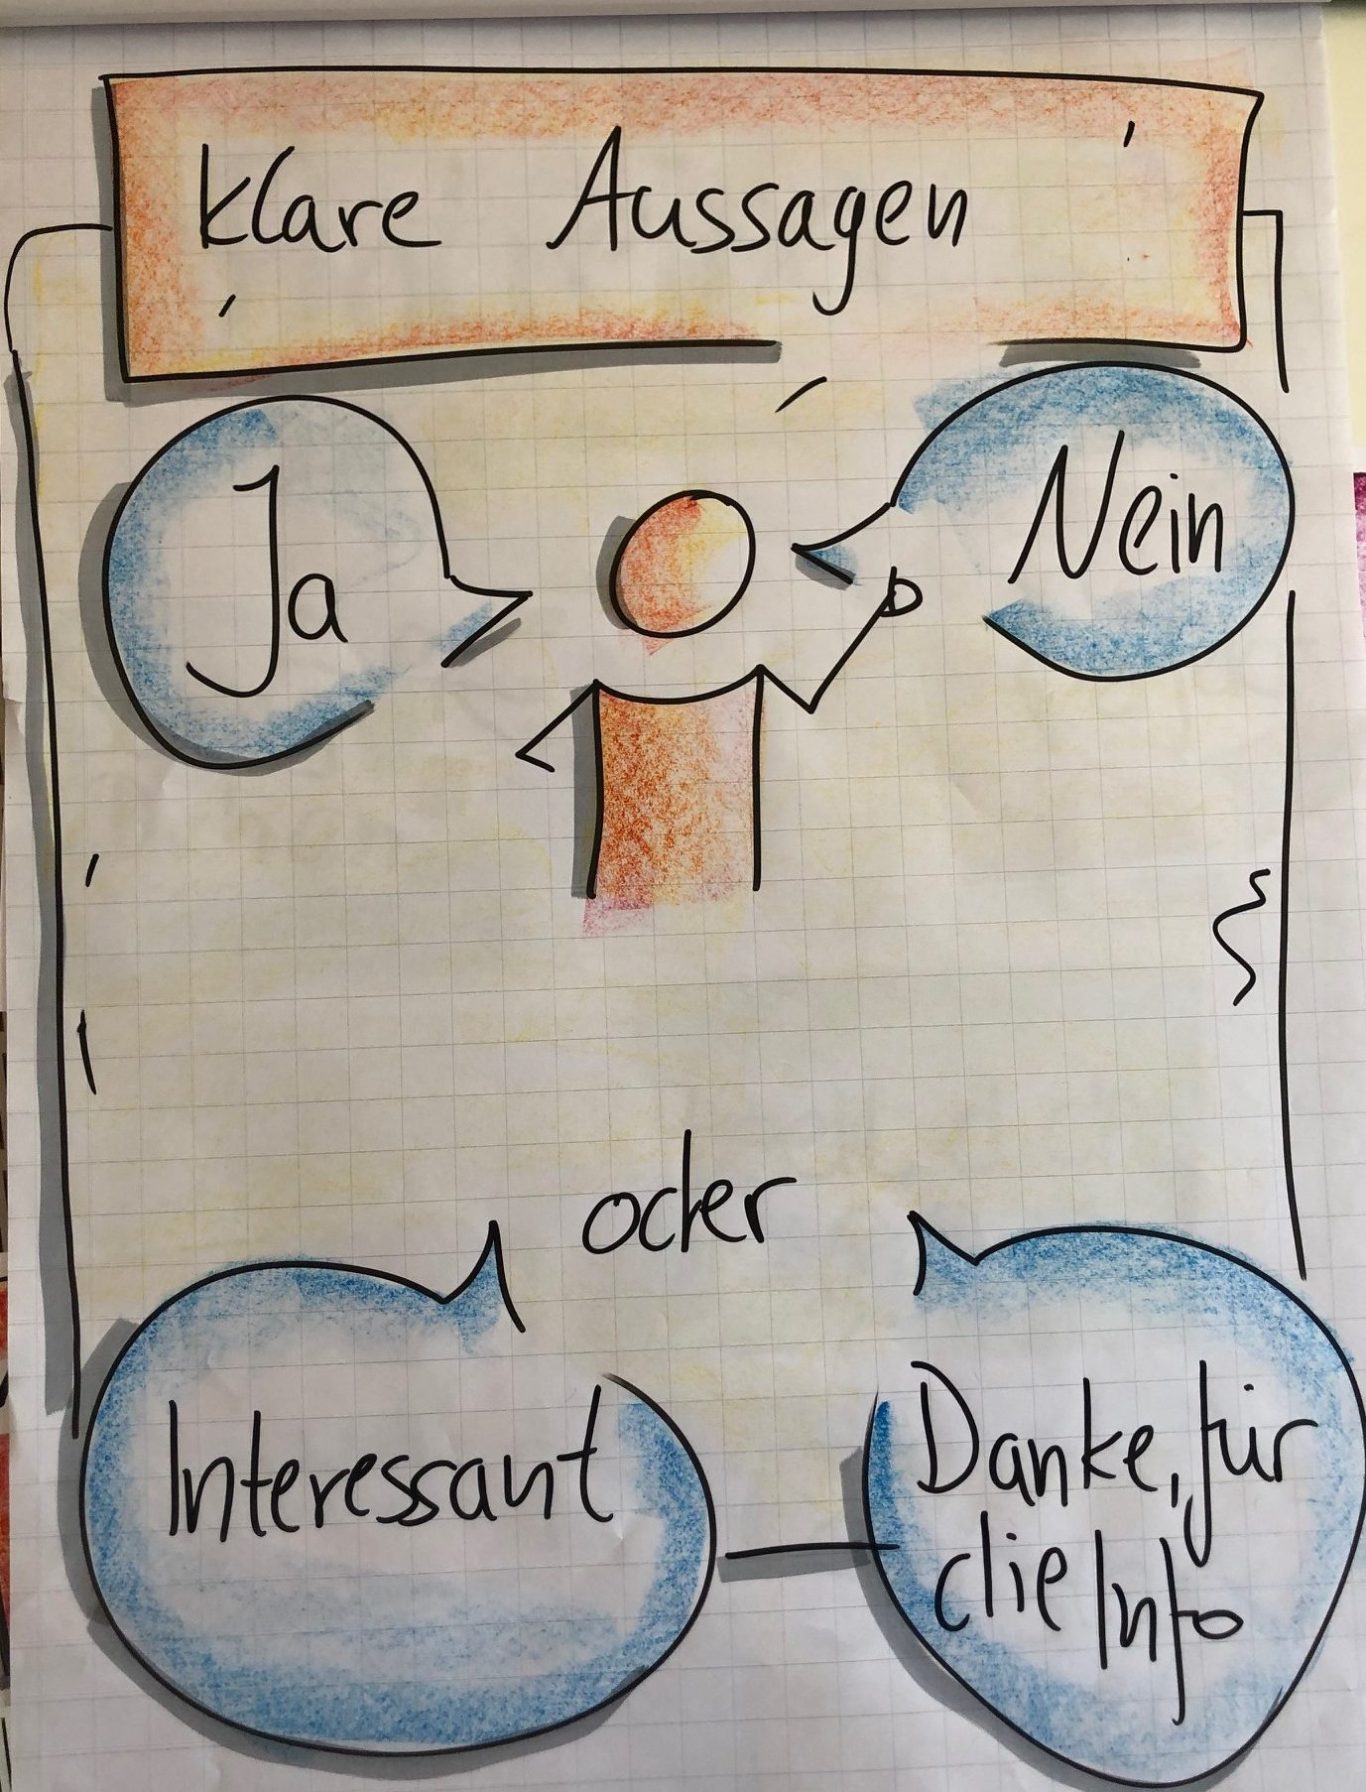 klare Aussagen
Ja
Nein
oder
Interessant
Danke, für
die Info